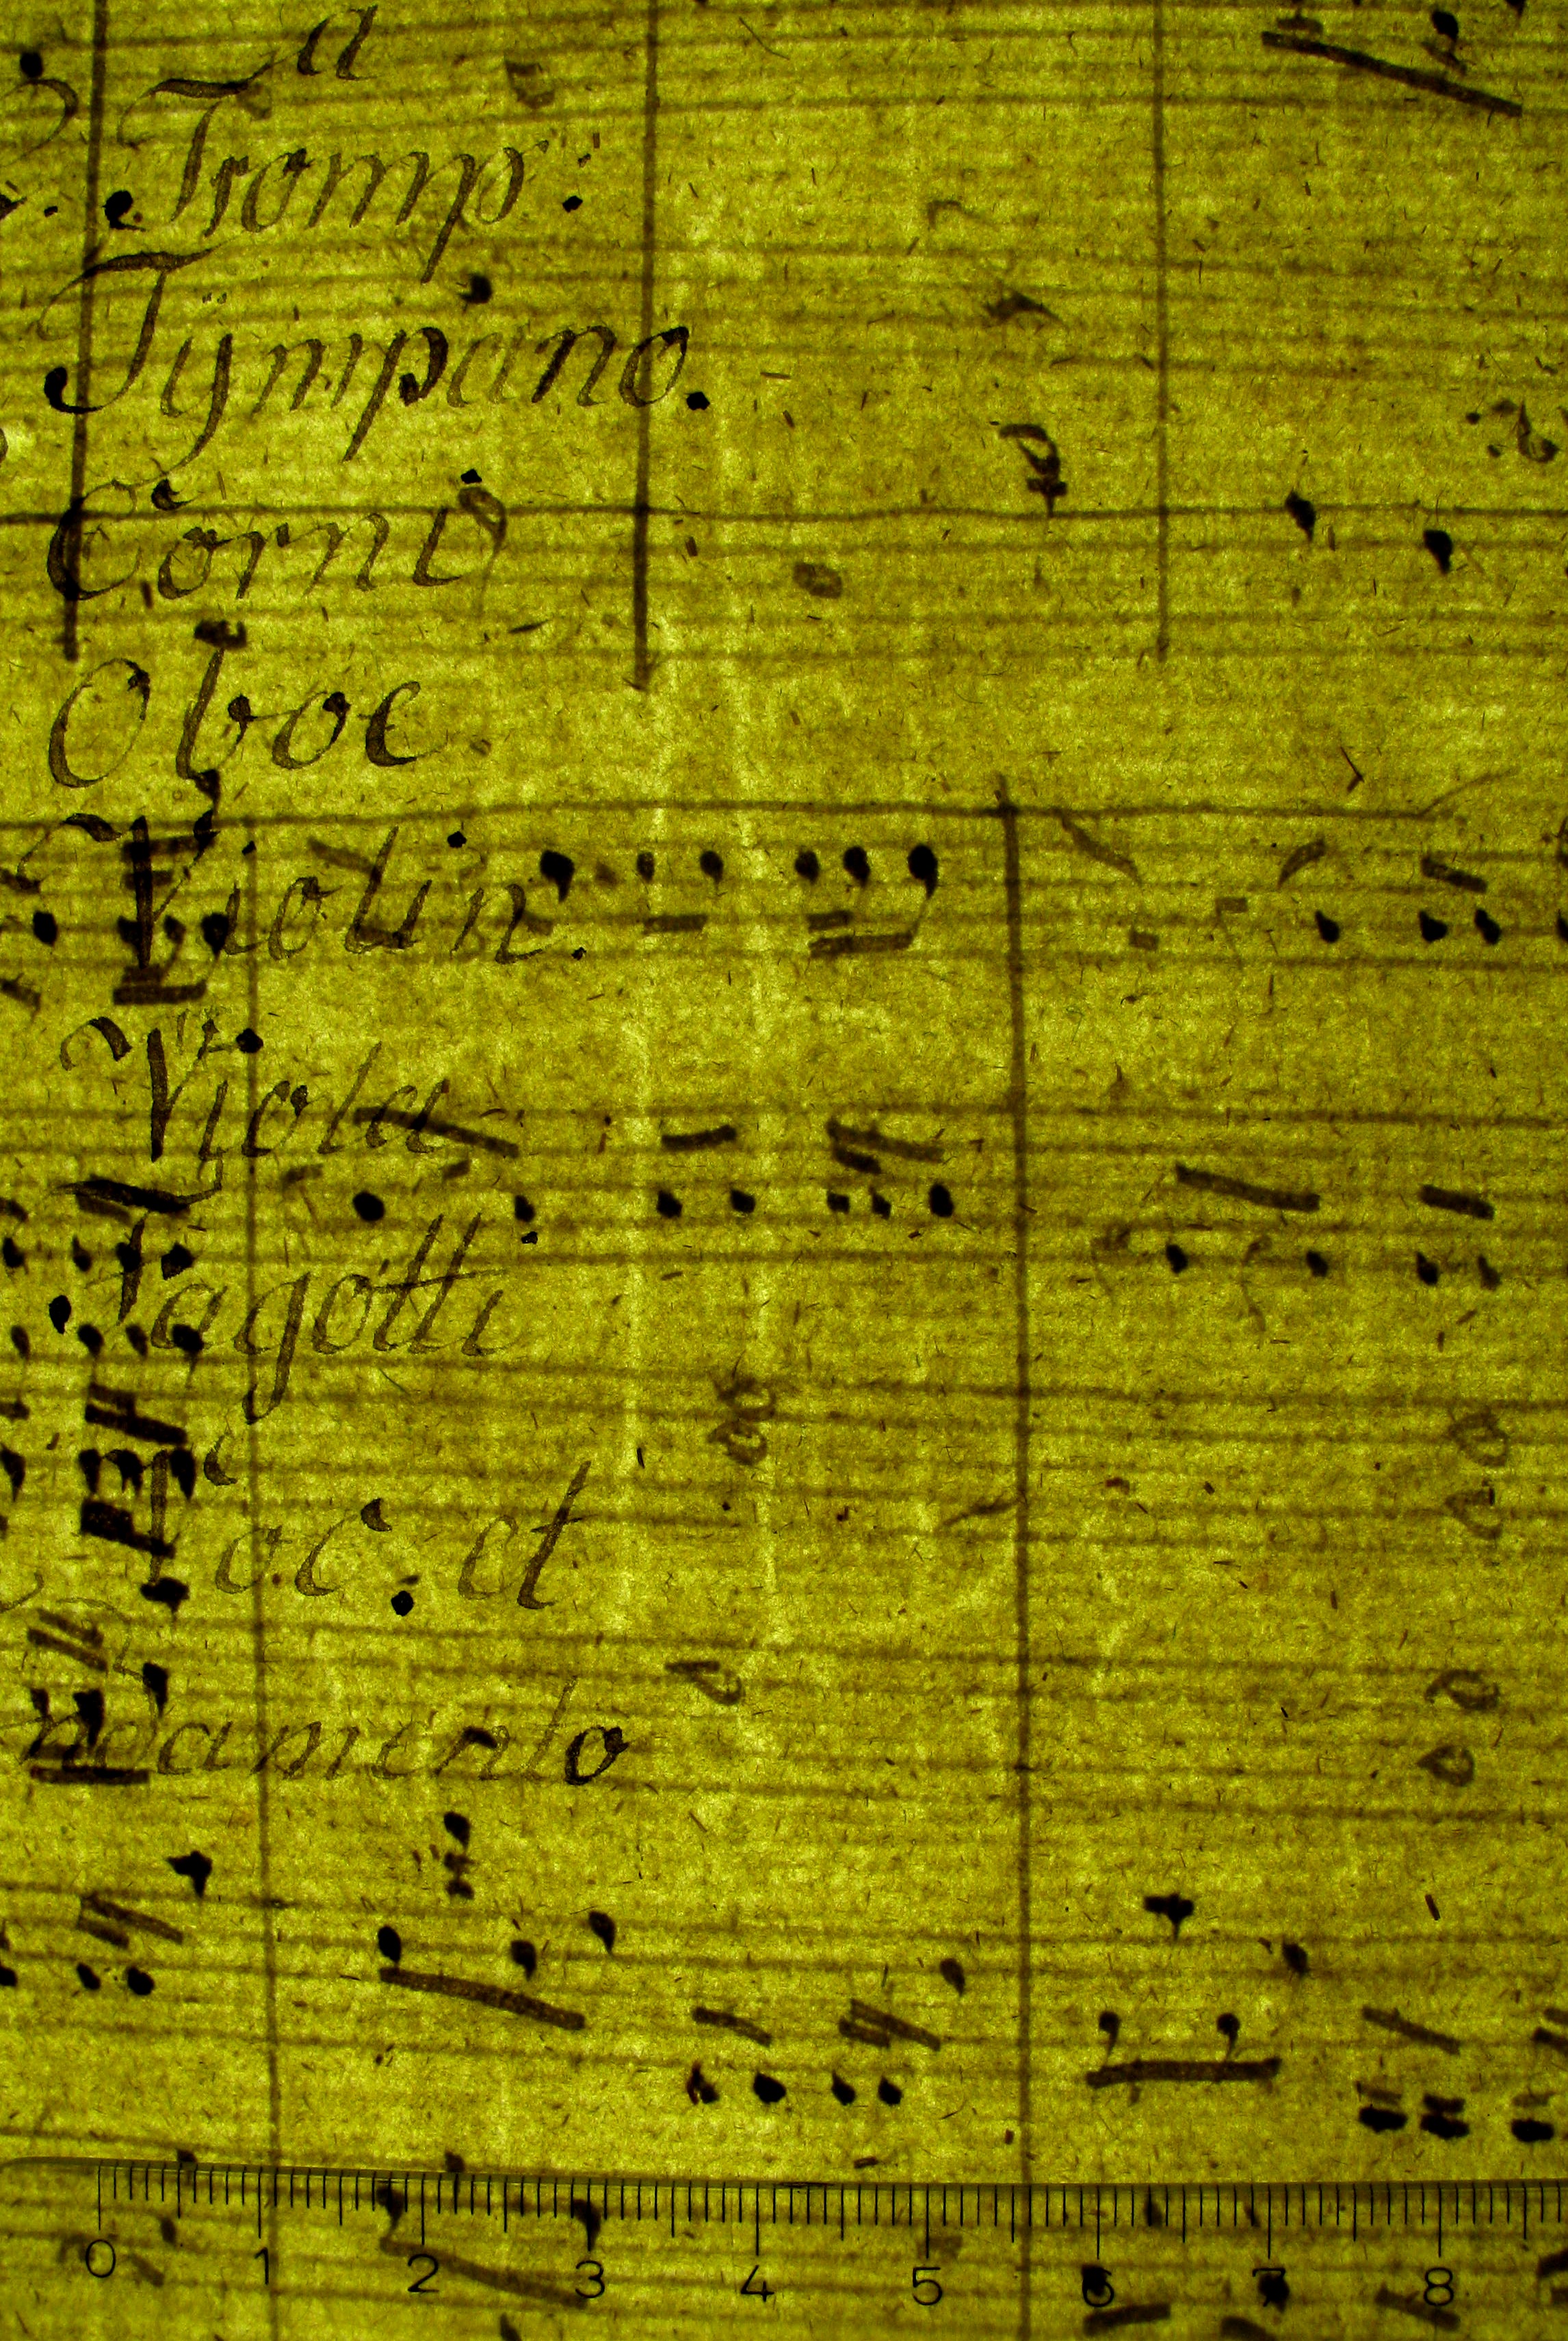 a
Tromp:
Tÿmpano.
Corni
Oboe.
Violin.
Viola
Fagotti
Voc: et
ndamento
0 1 2 3 4 5 6 7 8